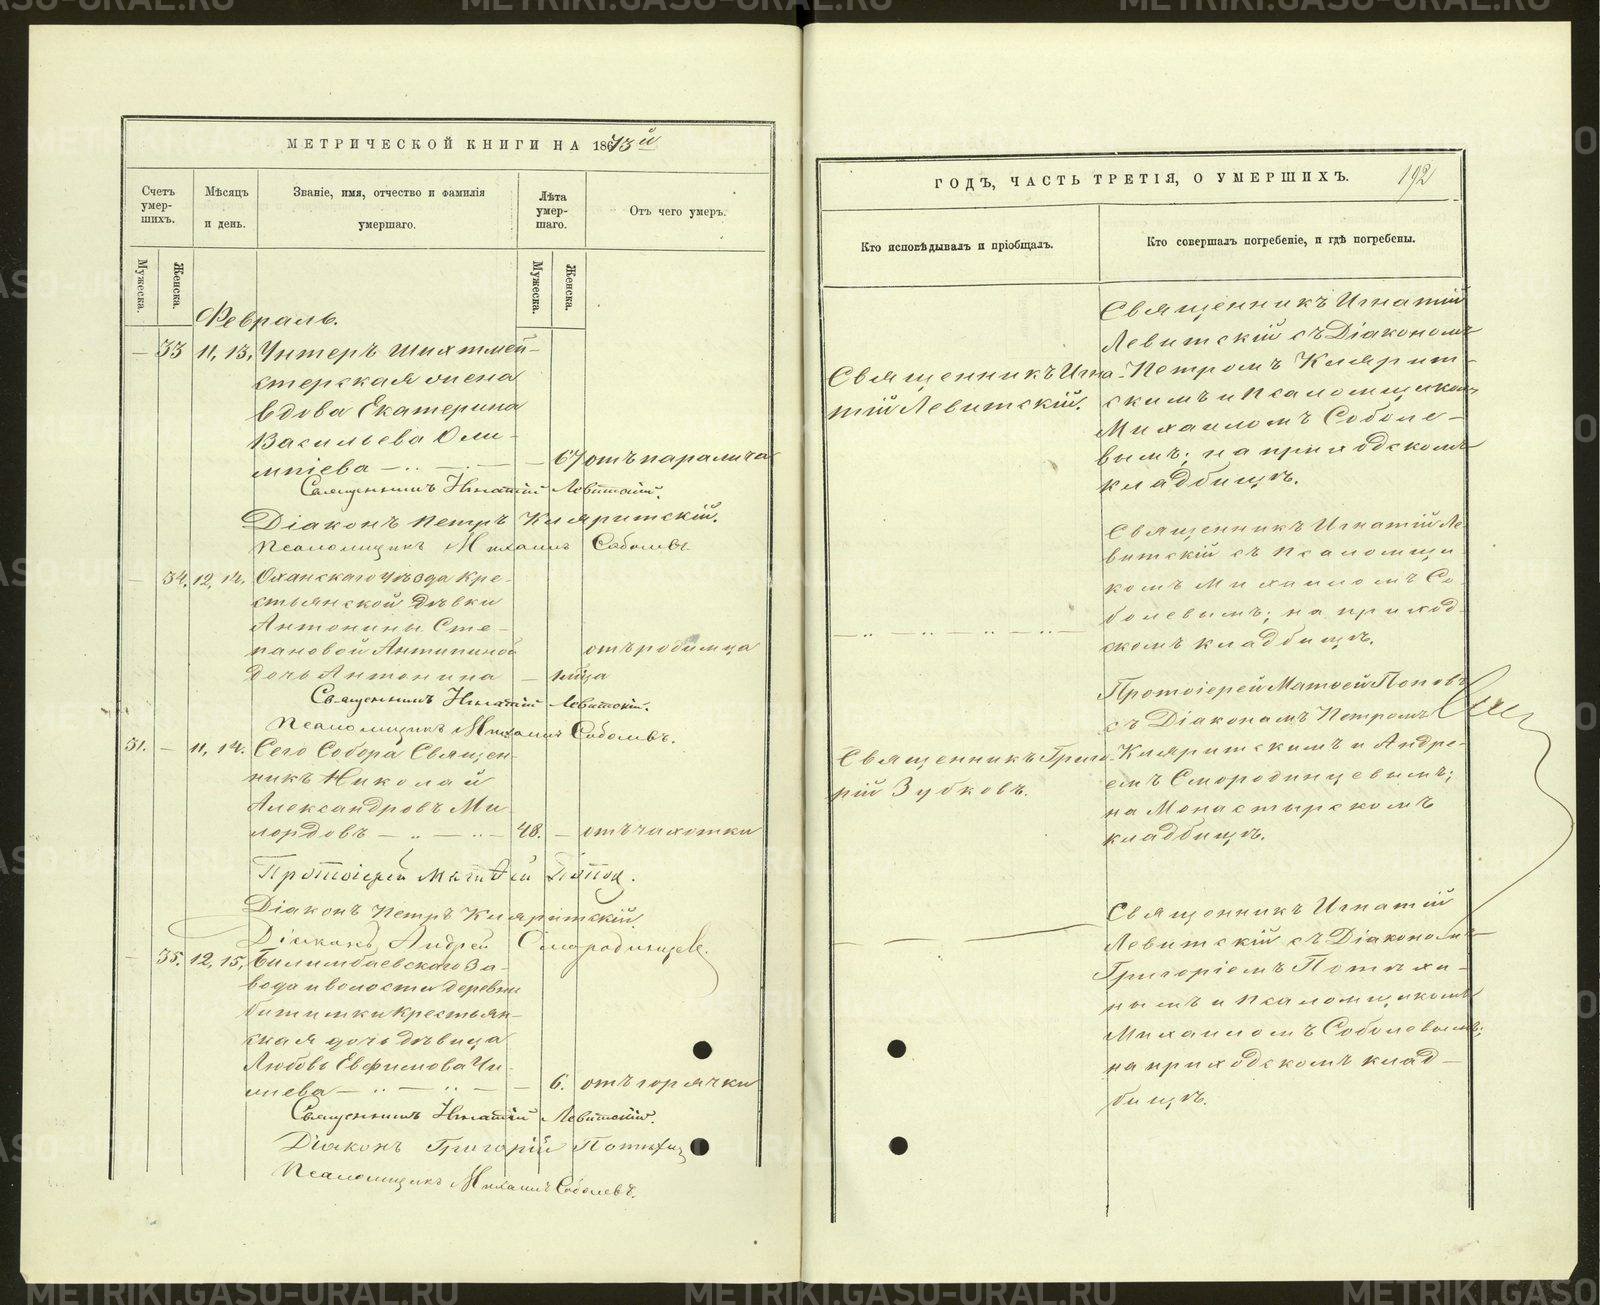 МЕТРИЧЕСКОЙ КНИГИ НА 1873й
Счетъ умер-шихъ.
Мѣсяцъ и день.
Званіе, имя, отчество и фамилія умершаго.
Лѣта умер-шаго.
Отъ чего умеръ.
Мужеска.
Женска.
Мужеска.
Женска.
Февраль.
— 33 11, 13, Унтеръ шихтмей-
стерская жена
вдова Екатерина
Васильева Оли-
мпіева — .. — . — — 67 отъ паралича
Священникъ Игнатій Левитскій.
Діаконъ Петръ Кляритскій.
Псаломщикъ Михаилъ Соболевъ.
— 34. 12, 14. Оханскаго уѣзда кре-
стьянской дѣвки
Антонины Сте-
пановой Антипиной отъ родимца
дочь Антонина —
Священникъ Игнатій Левитскій.
Псаломщикъ Михаилъ Соболевъ.
31. — 11, 14. Сего Собора Священ-
никъ Николай
Александровъ Ми-
лордовъ — .. — .. — 48. — отъ чахотки
Протоіерей Матѳей Поповъ.
Діаконъ Петръ Кляритскій.
Діаконъ Андрей Смородинцевъ.
— 35. 12, 15, Билимбаевскаго За-
вода и волости деревни
Битимки крестьян-
ская дочь дѣвица
Любовь Евфимова Чи-
лиева — .. — .. — — 6. отъ горячки
Священникъ Игнатій Левитскій.
Діаконъ Григорій Потѣхинъ
Псаломщикъ Михаилъ Соболевъ.
ГОДЪ, ЧАСТЬ ТРЕТІЯ, О УМЕРШИХЪ. 192
Кто исповѣдывалъ и пріобщалъ.
Кто совершалъ погребеніе, и гдѣ погребены.
Священникъ Игна-
тій Левитскій.
Священникъ Игнатій
Левитскій съ Діакономъ
Петромъ Кляритскимъ
и Псаломщикомъ
Михаиломъ Соболе-
вымъ; на приходскомъ
кладбищѣ.
— .. — .. — .. —
Священникъ Игнатій Ле-
витскій съ Псаломщи-
комъ Михаиломъ Со-
болевымъ; на приход-
скомъ кладбищѣ.
Священникъ Григо-
рій Зубковъ.
Протоіерей Матѳей Поповъ
съ Діаконами Петромъ
Кляритскимъ и Андре-
емъ Смородинцевымъ;
на Монастырскомъ
кладбищѣ.
Священникъ Игнатій
Левитскій съ Діакономъ
Григоріемъ Потѣхи-
нымъ и Псаломщикомъ
Михаиломъ Соболевымъ;
на приходскомъ клад-
бищѣ.
METRIKI.GASO-URAL.RU